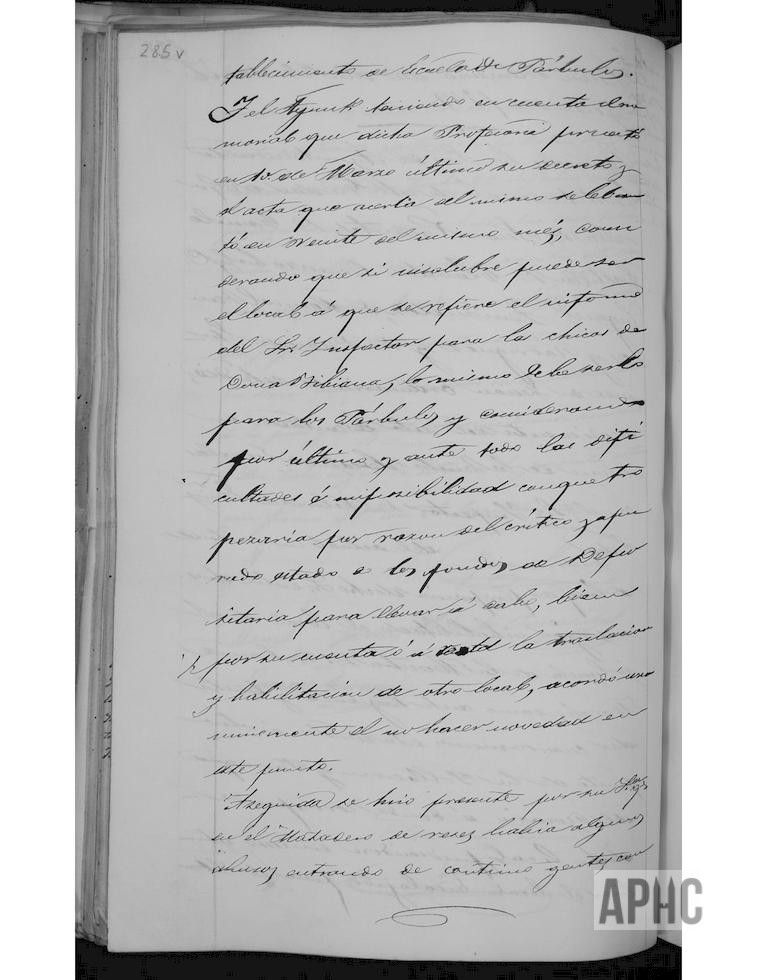 285v
tablecimiento de Escuela de Párbulos.
Y el Ayunt.º teniendo en cuenta el me
morial que dicha Profesora presentó
en 10. de Marzo último su decreto y
el acta que acerca del mismo se leban
tó en veinte del mismo més, consi
derando que si insalubre puede ser
el local á que se refiere el informe
del Sr Inspector para las chicas de
Doña Bibiana, lo mismo debe serlo
para los Párbulos y considerando
por último y ante todo las difi
cultades é imposibilidad con que tro
pezaria por razon del crítico y apu
rado estado de los fondos de Depo
sitaria para llevar á cabo, bien
por su cuenta ó á la traslacion
y habilitacion de otro local, acordó una
nimemente el no hacer novedad en
este punto.
Aseguida se hizo presente por su Sria
en el Matadero de reses habia algunos
abusos entrando de contínuo gentes con
APHC